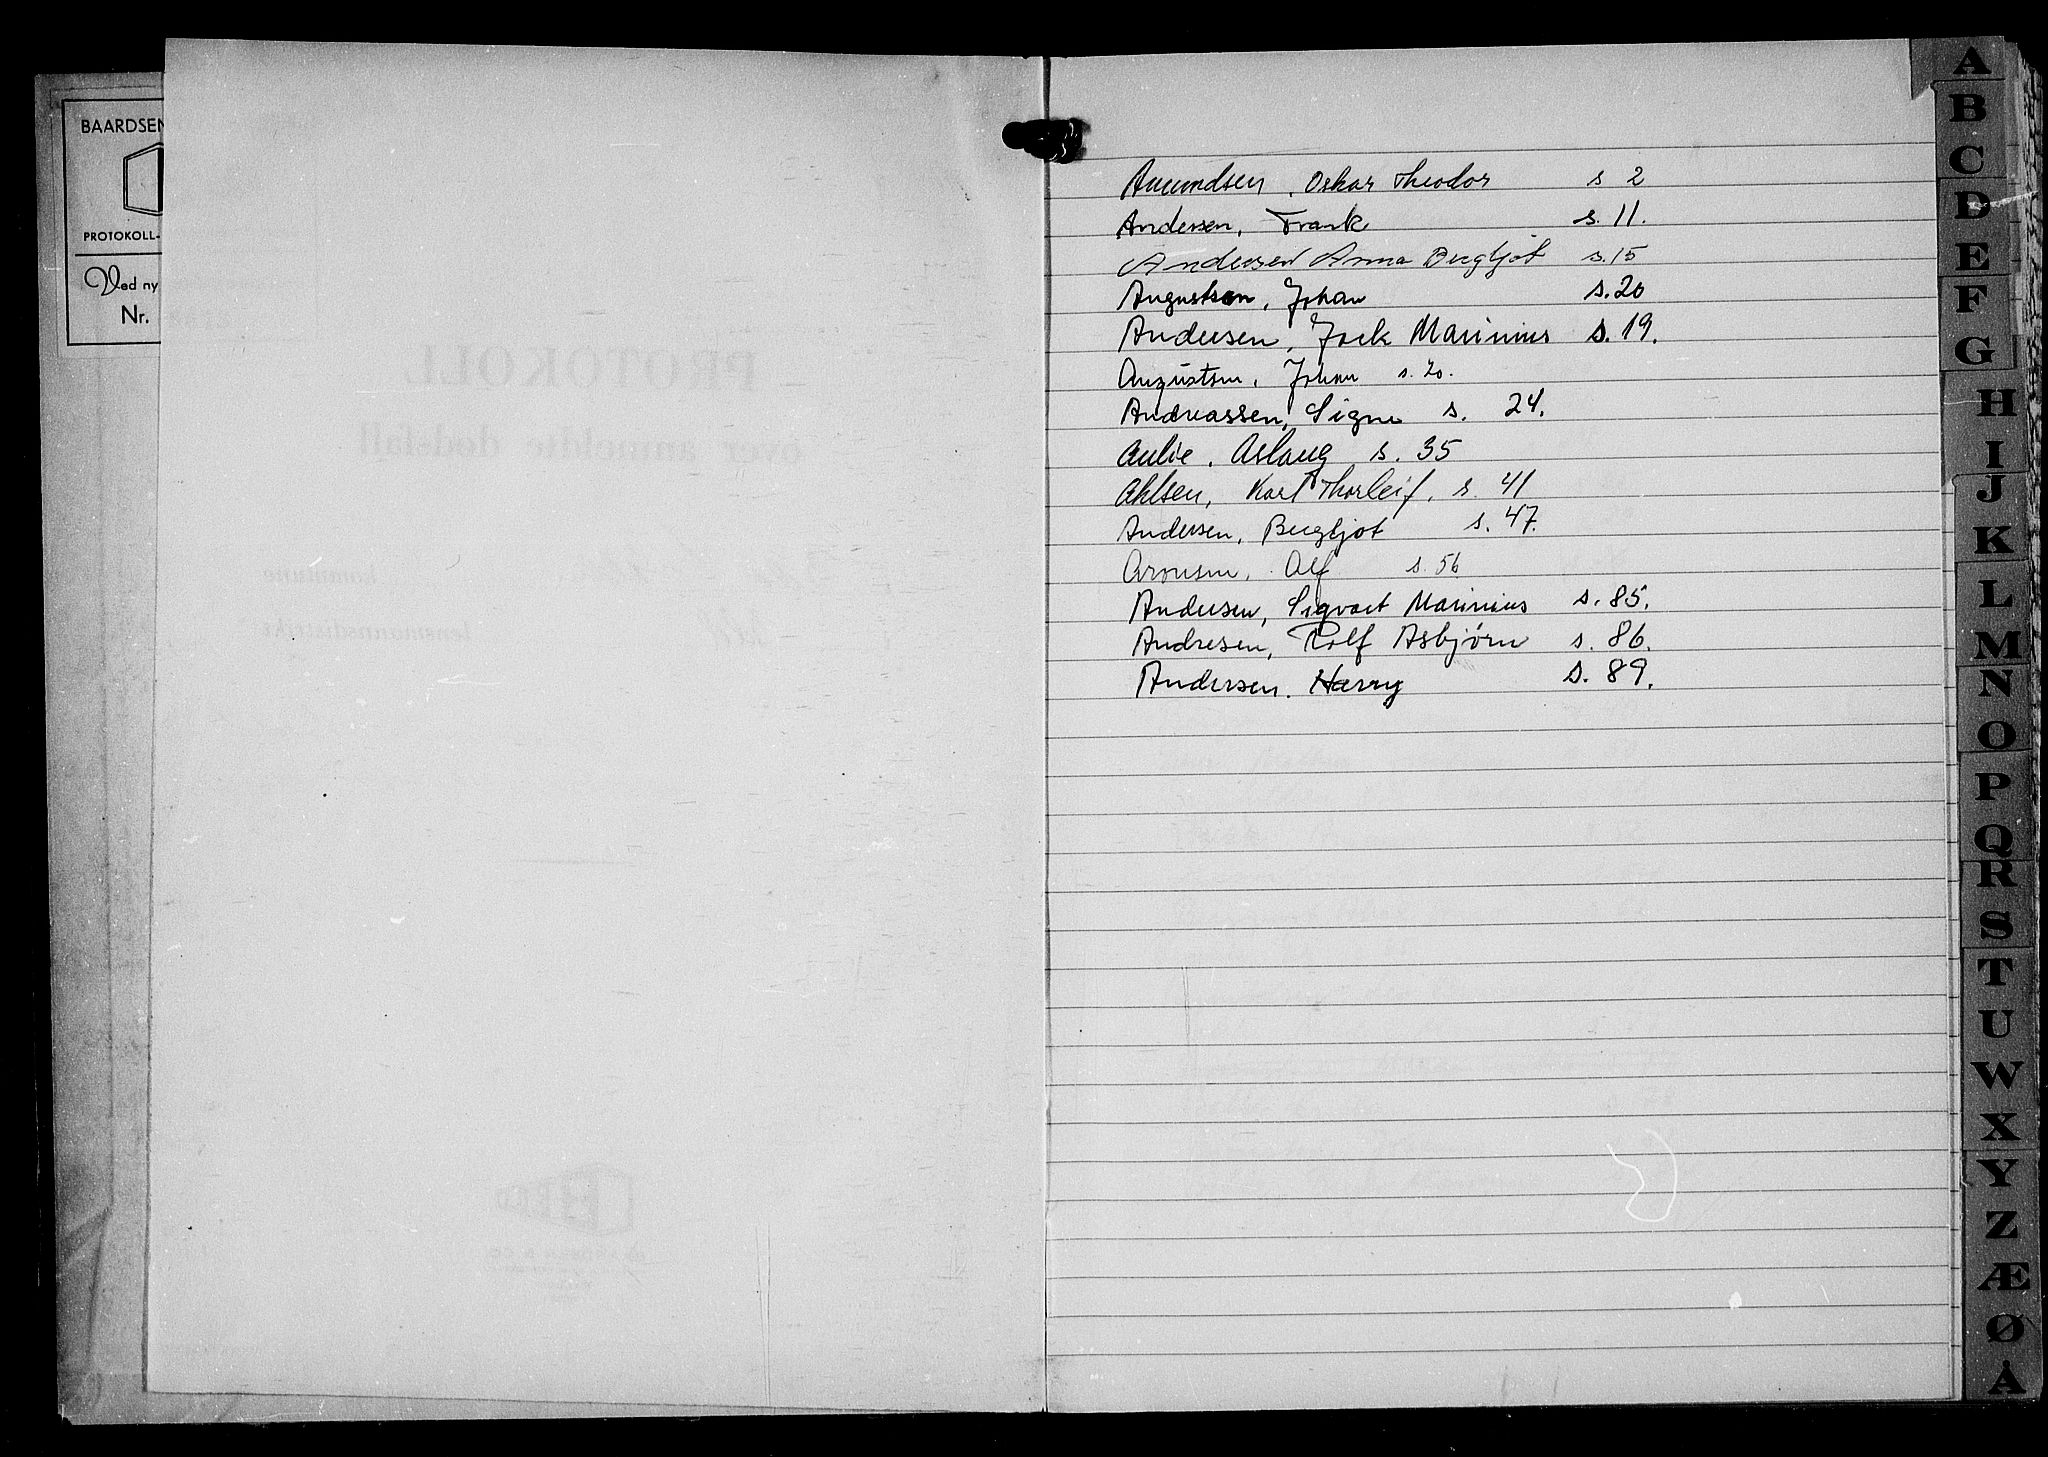 BAARDSEN
PROTOKOLL-
Ved ny
Nr.
PROTOKOLL
over anmeldte dødsfall
kommune
lensmannsdistrikt
Amundsen, Oskar Theodor s 2
Andersen, Frank s. 11.
Andersen Anna Bergljot s. 15
Augustson, Johan s. 20
Andersen, Jack Marinius s. 19.
Augustson, Johan s. 20.
Andreassen, Signe s. 24.
Aulie, Aslaug s. 35
Ahlsen, Karl Thorleif. s. 41
Andersen, Bergljot s. 47.
Aronsen, Alf s. 56
Andersen, Sigvart Marinius s. 85.
Andresen, Rolf Asbjørn s. 86.
Andersen. Harry s. 89.
A
B
C
D
E
F
G
H
I
J
K
L
M
N
O
P
Q
R
S
T
U
W
X
Y
Z
Æ
Ø
Å